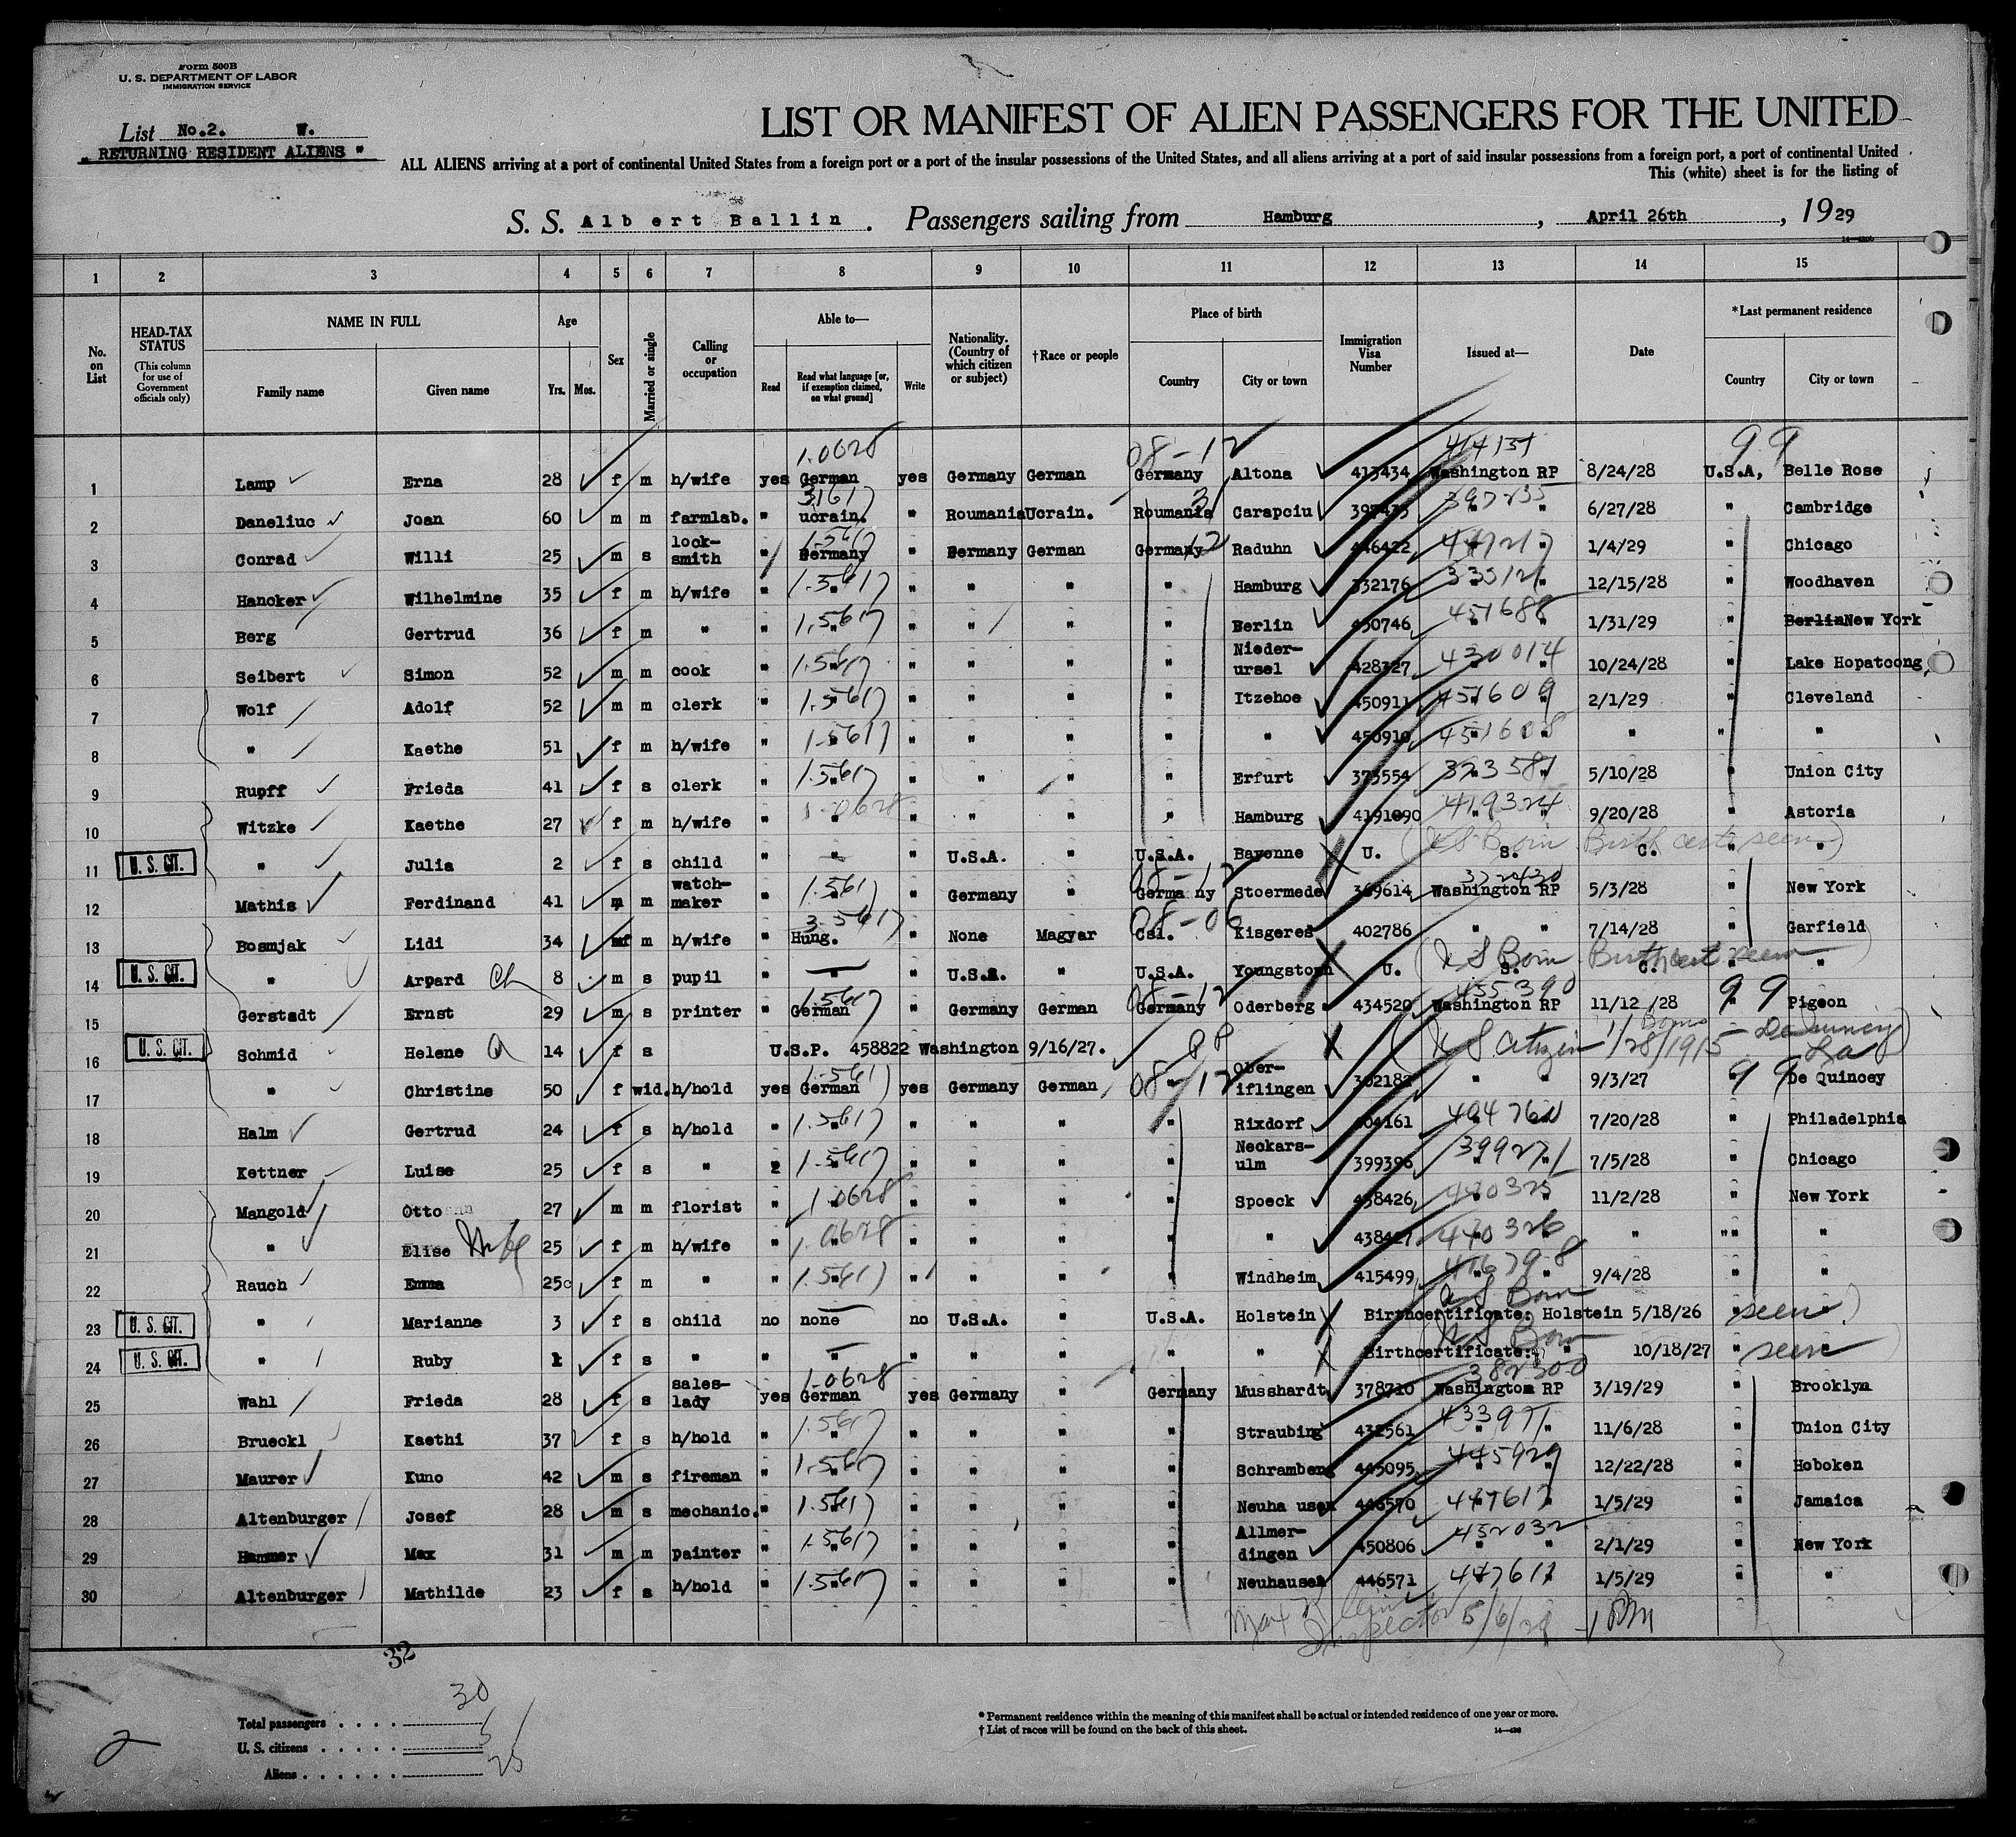 Form 500B
U. S. DEPARTMENT OF LABOR
IMMIGRATION SERVICE
List No.2. W.
" RETURNING RESIDENT ALIENS "
LIST OR MANIFEST OF ALIEN PASSENGERS FOR THE UNITED
ALL ALIENS arriving at a port of continental United States from a foreign port or a port of the insular possessions of the United States, and all aliens arriving at a port of said insular possessions from a foreign port, a port of continental United
This (white) sheet is for the listing of
S. S. Albert Ballin . Passengers sailing from Hamburg , April 26th , 1929
1 2 3 4 5 6 7 8 9 10 11 12 13 14 15
No. on List
HEAD-TAX STATUS
(This column for use of Government officials only)
NAME IN FULL
Family name
Given name
Age
Yrs. Mos.
Sex
Married or single
Calling or occupation
Able to—
Read
Read what language [or, if exemption claimed, on what ground]
Write
Nationality. (Country of which citizen or subject)
†Race or people
Place of birth
Country
City or town
Immigration Visa Number
Issued at—
Date
*Last permanent residence
Country
City or town
1.0628 08-12 414131 99
1 Lamp Erna 28 f m h/wife yes German yes Germany German Germany Altona 413434 Washington RP 8/24/28 U.S.A, Belle Rose
31617 31 397235
2 Daneliuc Joan 60 m m farmlab. " ucrain. " Roumania Ucrain. Roumania Carapciu " " 6/27/28 " Cambridge
1.5617 12 447217
3 Conrad Willi 25 m s lock-smith " Germany " Germany German Germany Raduhn 446422 " " 1/4/29 " Chicago
1.5617
4 Hancker Wilhelmine 35 f m h/wife " " " " " " Hamburg 332176 " " 12/15/28 " Woodhaven
1.5617 451688
5 Berg Gertrud 36 f m " " " " " " " Berlin 450746 " " 1/31/29 " Berlin New York
1.5617 430014
6 Seibert Simon 52 m m cook " " " " " " Nieder-ursel 428327 " " 10/24/28 " Lake Hopatcong
1.5617 451609
7 Wolf Adolf 52 m m clerk " " " " " " Itzehoe 450911 " " 2/1/29 " Cleveland
1.5617 451608
8 " Kaethe 51 f m h/wife " " " " " " " 450910 " " " " "
1.5617 373581
9 Rupff Frieda 41 f s clerk " " " " " " Erfurt 373554 " " 5/10/28 " Union City
1.0628 419324
10 Witzke Kaethe 27 f m h/wife " " " " " " Hamburg 4191090 " " 9/20/28 " Astoria
U S Born Birth cert seen
U. S. CIT.
11 " Julia 2 f s child " " " U.S.A. " U.S.A. Bayonne U. S. C. " "
1.5617 08-12
12 Mathis Ferdinand 41 m m watch-maker " " " Germany " Germa ny Stoermede 369614 Washington RP 5/3/28 " New York
3.5617 08-06
13 Bosmjak Lidi 34 f m h/wife " Hung. " None Magyar Csl. Kisgeres 402786 " " 7/14/28 " Garfield
U S Born Birth cert seen
U. S. CIT.
14 " Arpard Ch 8 m s pupil " " " U.S.A. " U.S.A. Youngstown U. S. C. " "
1.5617 08-12 455390 99
15 Gerstadt Ernst 29 m s printer " German " Germany German Germany Oderberg 434520 Washington RP 11/12 /28 " Pigeon
U. S. CIT.
16 Schmid Helene 14 f s U.S.P. 458822 Washington 9/16/27. U S Citizen Born 1/28/1915 - DeQuincy La
1.5617 08-12 99
17 " Christine 50 f wid. h/hold yes German yes Germany German " Ober-iflingen " " 9/3/27 " De Quincey
1.5617
18 Halm Gertrud 24 f s h/hold " " " " " " Rixdorf " " 7/20/28 " Philadelphia
1.5617 399271
19 Kettner Luise 25 f s " " " " " " " Neckars-ulm 399396 " " 7/5/28 " Chicago
1.0628 440325
20 Mangold Otto 27 m m florist " " " " " " Spoeck 438426 " " 11/2/28 " New York
1.0628 440326
21 " Elise Wife 25 f m h/wife " " " " " " " 438427 " " " "" "
1.5617
22 Rauch Emma 25 f m " " " " " " " Windheim 415499 " " 9/4/28 " "
U S Born
U. S. CIT.
23 " Marianne 3 f s child no none no U.S.A. " U.S.A. Holstein Birthcertificate: Holstein 5/18/26 " seen "
U S Born
U. S. CIT.
24 " Ruby 1 f s " " " " " " " " Birthcertificate: " 10/18/27 " seen "
1.0628 382300
25 Wahl Frieda 28 f s sales-lady yes German yes Germany " Germany Musshardt 378710 Washington RP 3/19/29 " Brooklyn
1.5617 433971
26 Brueckl Kaethi 37 f s h/hold " " " " " " Straubing 432561 " " 11/6/28 " Union City
1.5617 445929
27 Maurer Kuno 42 m s fireman " " " " " " Schramberg 445095 " " 12/22/28 " Hoboken
1.5617 447617
28 Altenburger Josef 28 m s mechanic. " " " " " " Neuha usen 446570 " " 1/5/29 " Jamaica
1.5617 452032
29 Hammer Max 31 m m painter " " " " " " Allmer-dingen 450806 " " 2/1/29 " New York
1.5617 447611
30 Altenburger Mathilde 23 f s h/hold " " " " " " Neuhausen 446571 " " 1/5/29 " "
Inspector 5/6/29
32
Total passengers . . . . 30
U. S. citizens . . . . . 5
Aliens . . . . . . 25
2
* Permanent residence within the meaning of this manifest shall be actual or intended residence of one year or more.
† List of races will be found on the back of this sheet.